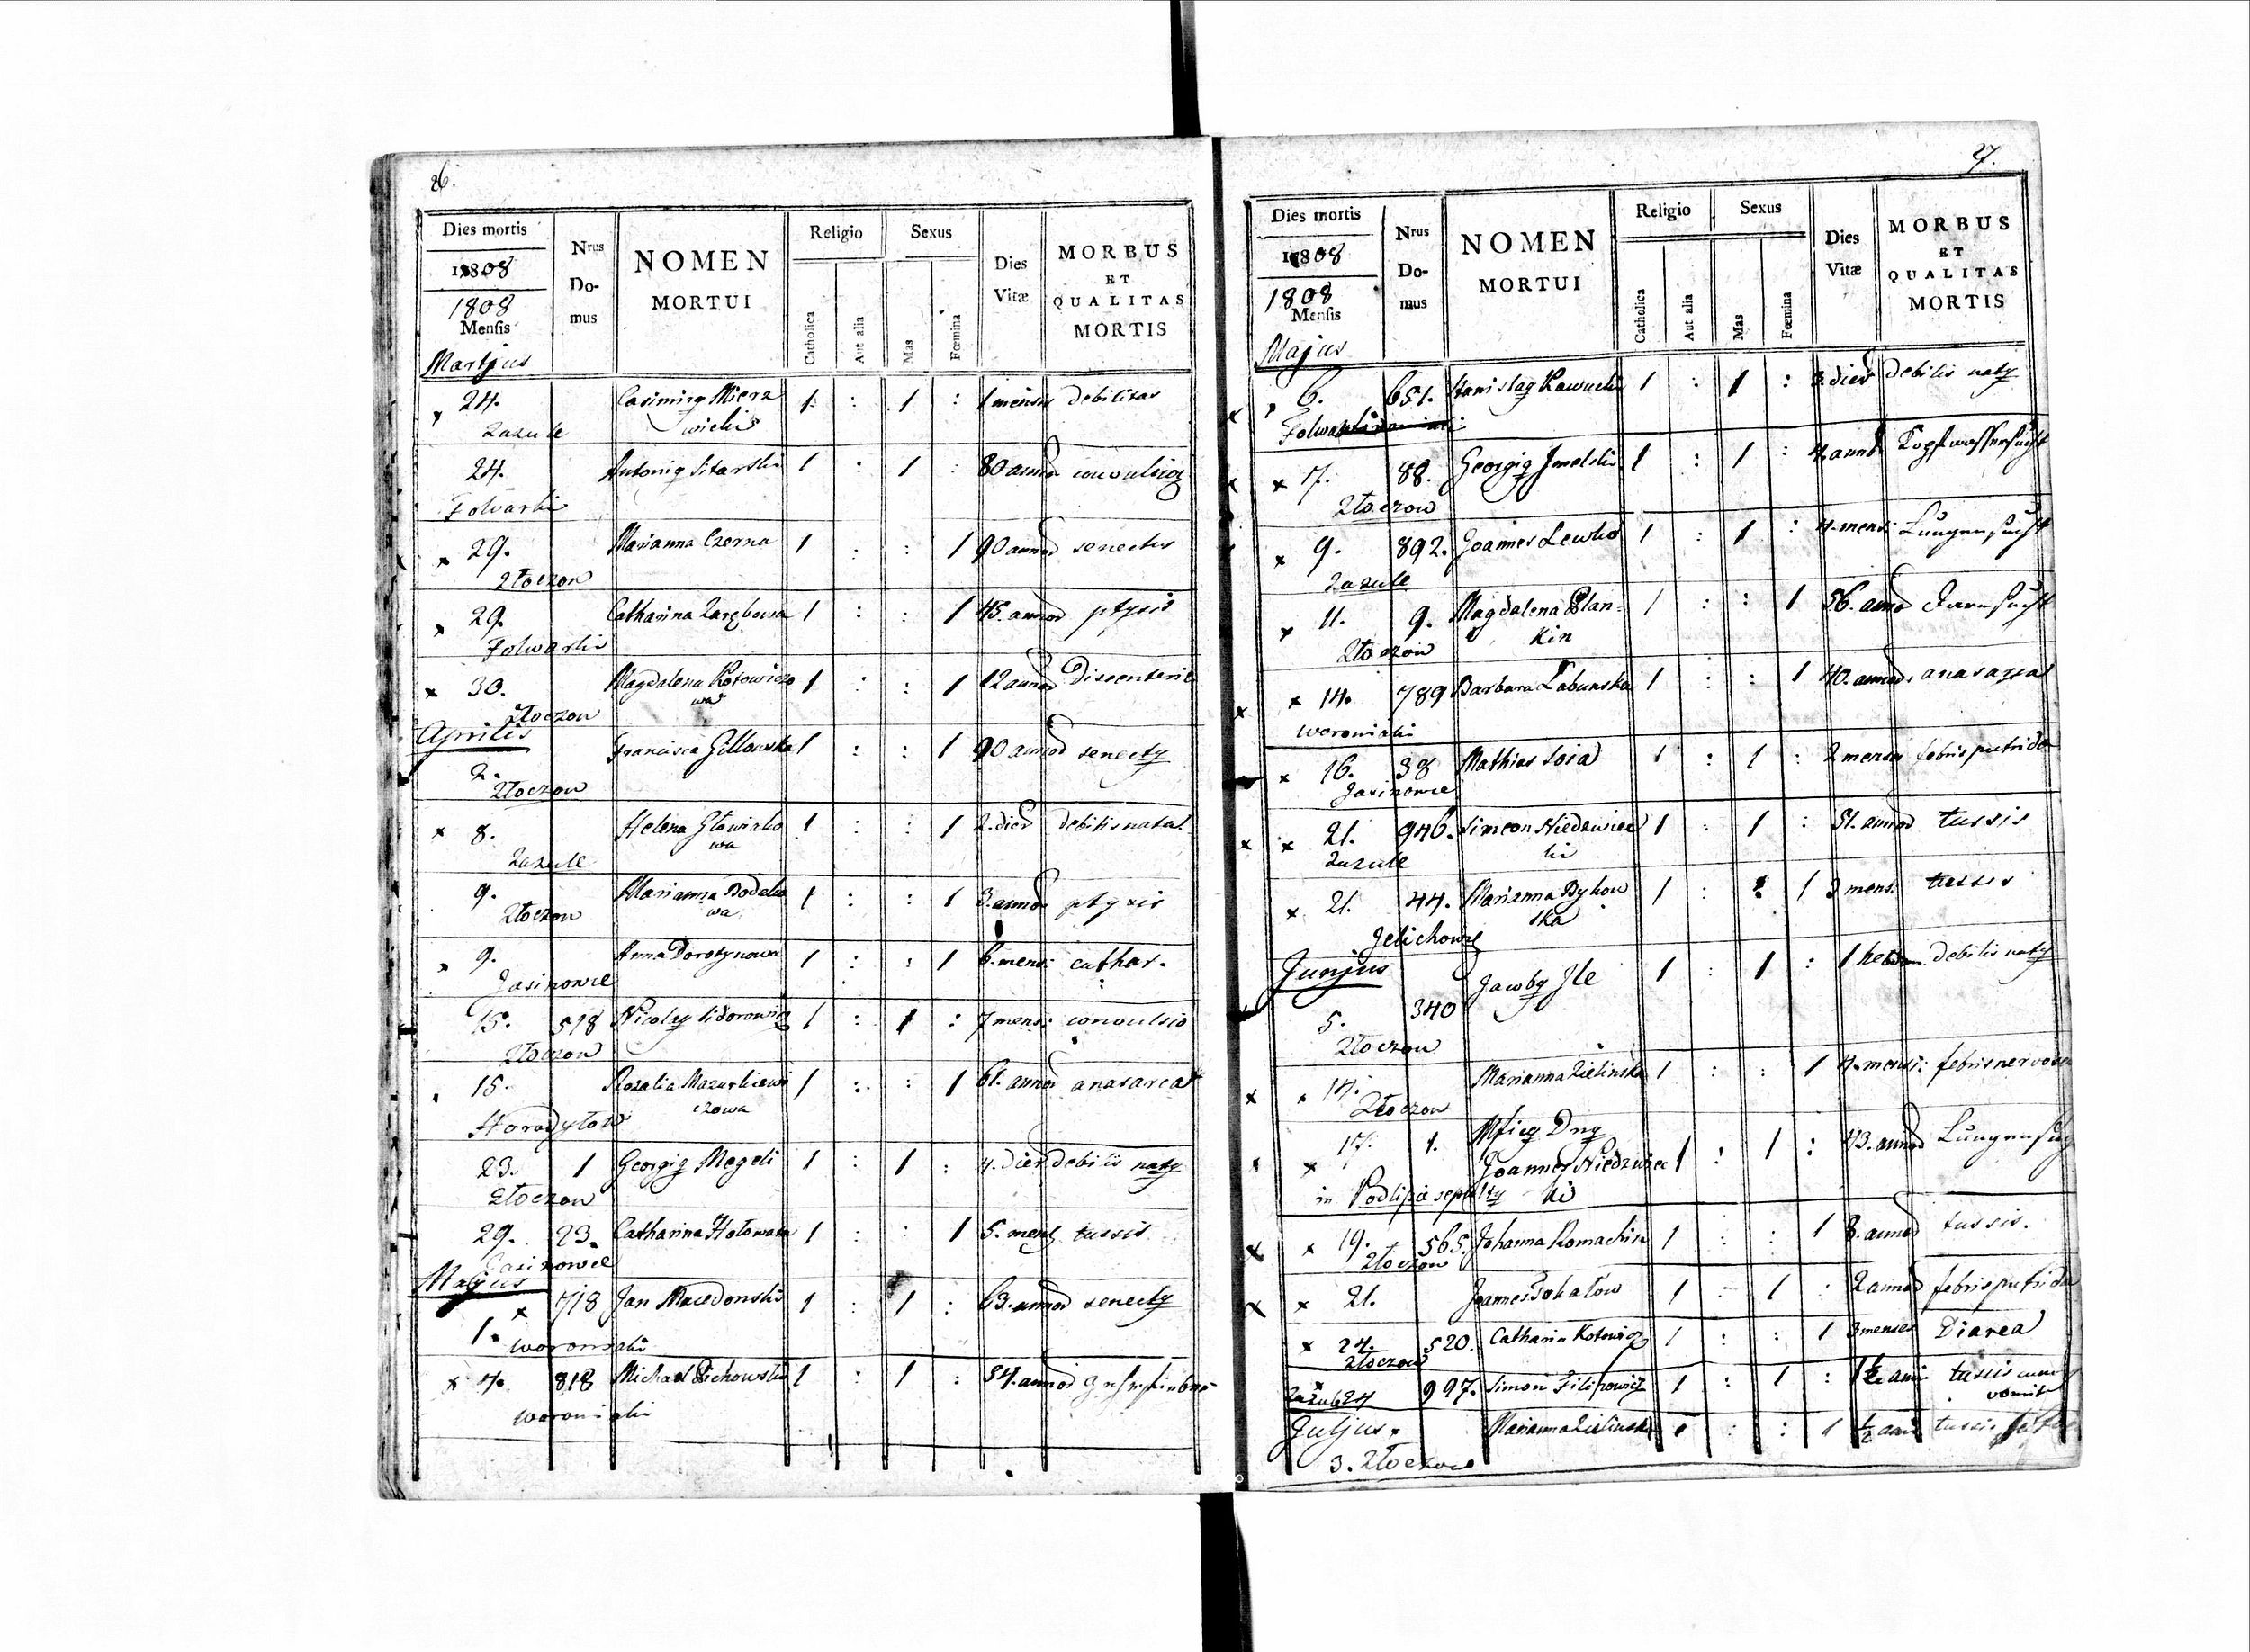 26.
Dies mortis
1808
1808
Mensis
Martjus
Nrus
Do-
mus
NOMEN
MORTUI
Religio
Catholica
Aut alia
Sexus
Mas
Fœmina
Dies
Vitæ
MORBUS
ET
QUALITAS
MORTIS
24. Casimirg Mierz 1 : 1 : 1 mensis debilitas
Zazule wickis
24. Antonig Sitarski 1 : 1 : 80 annor convulsio
Folwarki
x 29. Marianna Czerna 1 : : 1 90 annor senectus
Złoczow
x 29. Catharina Zarębowa 1 : : 1 45. annor ptysis
Folwarki
x 30. Magdalena Kotowiczo 1 : : 1 12 annor Dissenterie
Złoczow wa
Aprilis
2. Francisca Gillowska 1 : : 1 90 annor senectg
Złoczow
x 8. Helena Głowiako 1 : : 1 2. dier debilis natal
Zazule wa
9. Marianna Bodako 1 : : 1 3. annor ptysis
Złoczow wa
x 9. Anna Dorotynowa 1 : : 1 6. mens: cathar.
Jasinowce
15. 518 Nicolag Sidorowicz 1 : 1 : 7 mens: convulsio
Złoczow
15. Rozalia Mazurkiewi 1 : : 1 61. annor anasarca
Horodyłow czowa
23. 1 Georgig Megeli 1 : 1 : 4. dier debilis natg
Złoczow
29. 23. Catharina Hołowata 1 : : 1 5. mens tussis
Jasinowce
Majus
x 718 Jan Macedonski 1 : 1 : 63. annor senectg
1. woroniaki
x 4. 818 Michael Cichowski 1 : 1 : 54. annor
woroniaki
27.
Dies mortis
1808
1808
Mensis
Majus
Nrus
Do-
mus
NOMEN
MORTUI
Religio
Catholica
Aut alia
Sexus
Mas
Fœmina
Dies
Vitæ
MORBUS
ET
QUALITAS
MORTIS
x 6. 651. Stanislag Kawucki 1 : 1 : 3. dier debilis natg
Folwarki
x 7. 88. Georgig Jmelski 1 : 1 : 4. annor Kopfwassersucht
Złoczow
x 9. 892. Joannes Lewko 1 : 1 : 4. mens: Lungensucht
Zazule
x 11. 9. Magdalena Plan- 1 : : 1 56. anno Darrsucht
Złoczow kin
x x 14. 789 Barbara Łabunska 1 : : 1 40. annor anasarca
woroniaki
x 16. 38 Mathias Soia 1 : 1 : 2 menses febris putrida
Jasinowce
x x 21. 946. Simeon Niedzwiec 1 : 1 : 51. annor tussis
Zazule ki
x 21. 44. Marianna Bykow 1 : : 1 3 mens. tussis
ska
Jelichowce
Junjus
Jacobg Jle 1 : 1 : 1 hebdom. debilis natg
5. 340
Złoczow
x 14. Marianna Zielinska 1 : : 1 4. mens: febris nervosa
Złoczow
Mficg Dng
x 17. 1. Joannes Niedzwiec 1 : 1 : 43. annor Lungensucht
in Podlipie sepultg ki
x x 19. 565. Johanna Romachin 1 : : 1 8. annor tussis.
Złoczow
x x 21. Joannes Sokałow 1 : 1 : 2 annor febris putrida
x 24. 520. Catharin Kotowicz 1 : : 1 3 menses Diarea
Złoczow
x
Zazule 24 997. Simon Filipowicz 1 : 1 : 1½ anni tussis cum
vomitu
Juljus x Marianna Zielinska 1 : : 1 ½ anni tussis
3. Złoczow